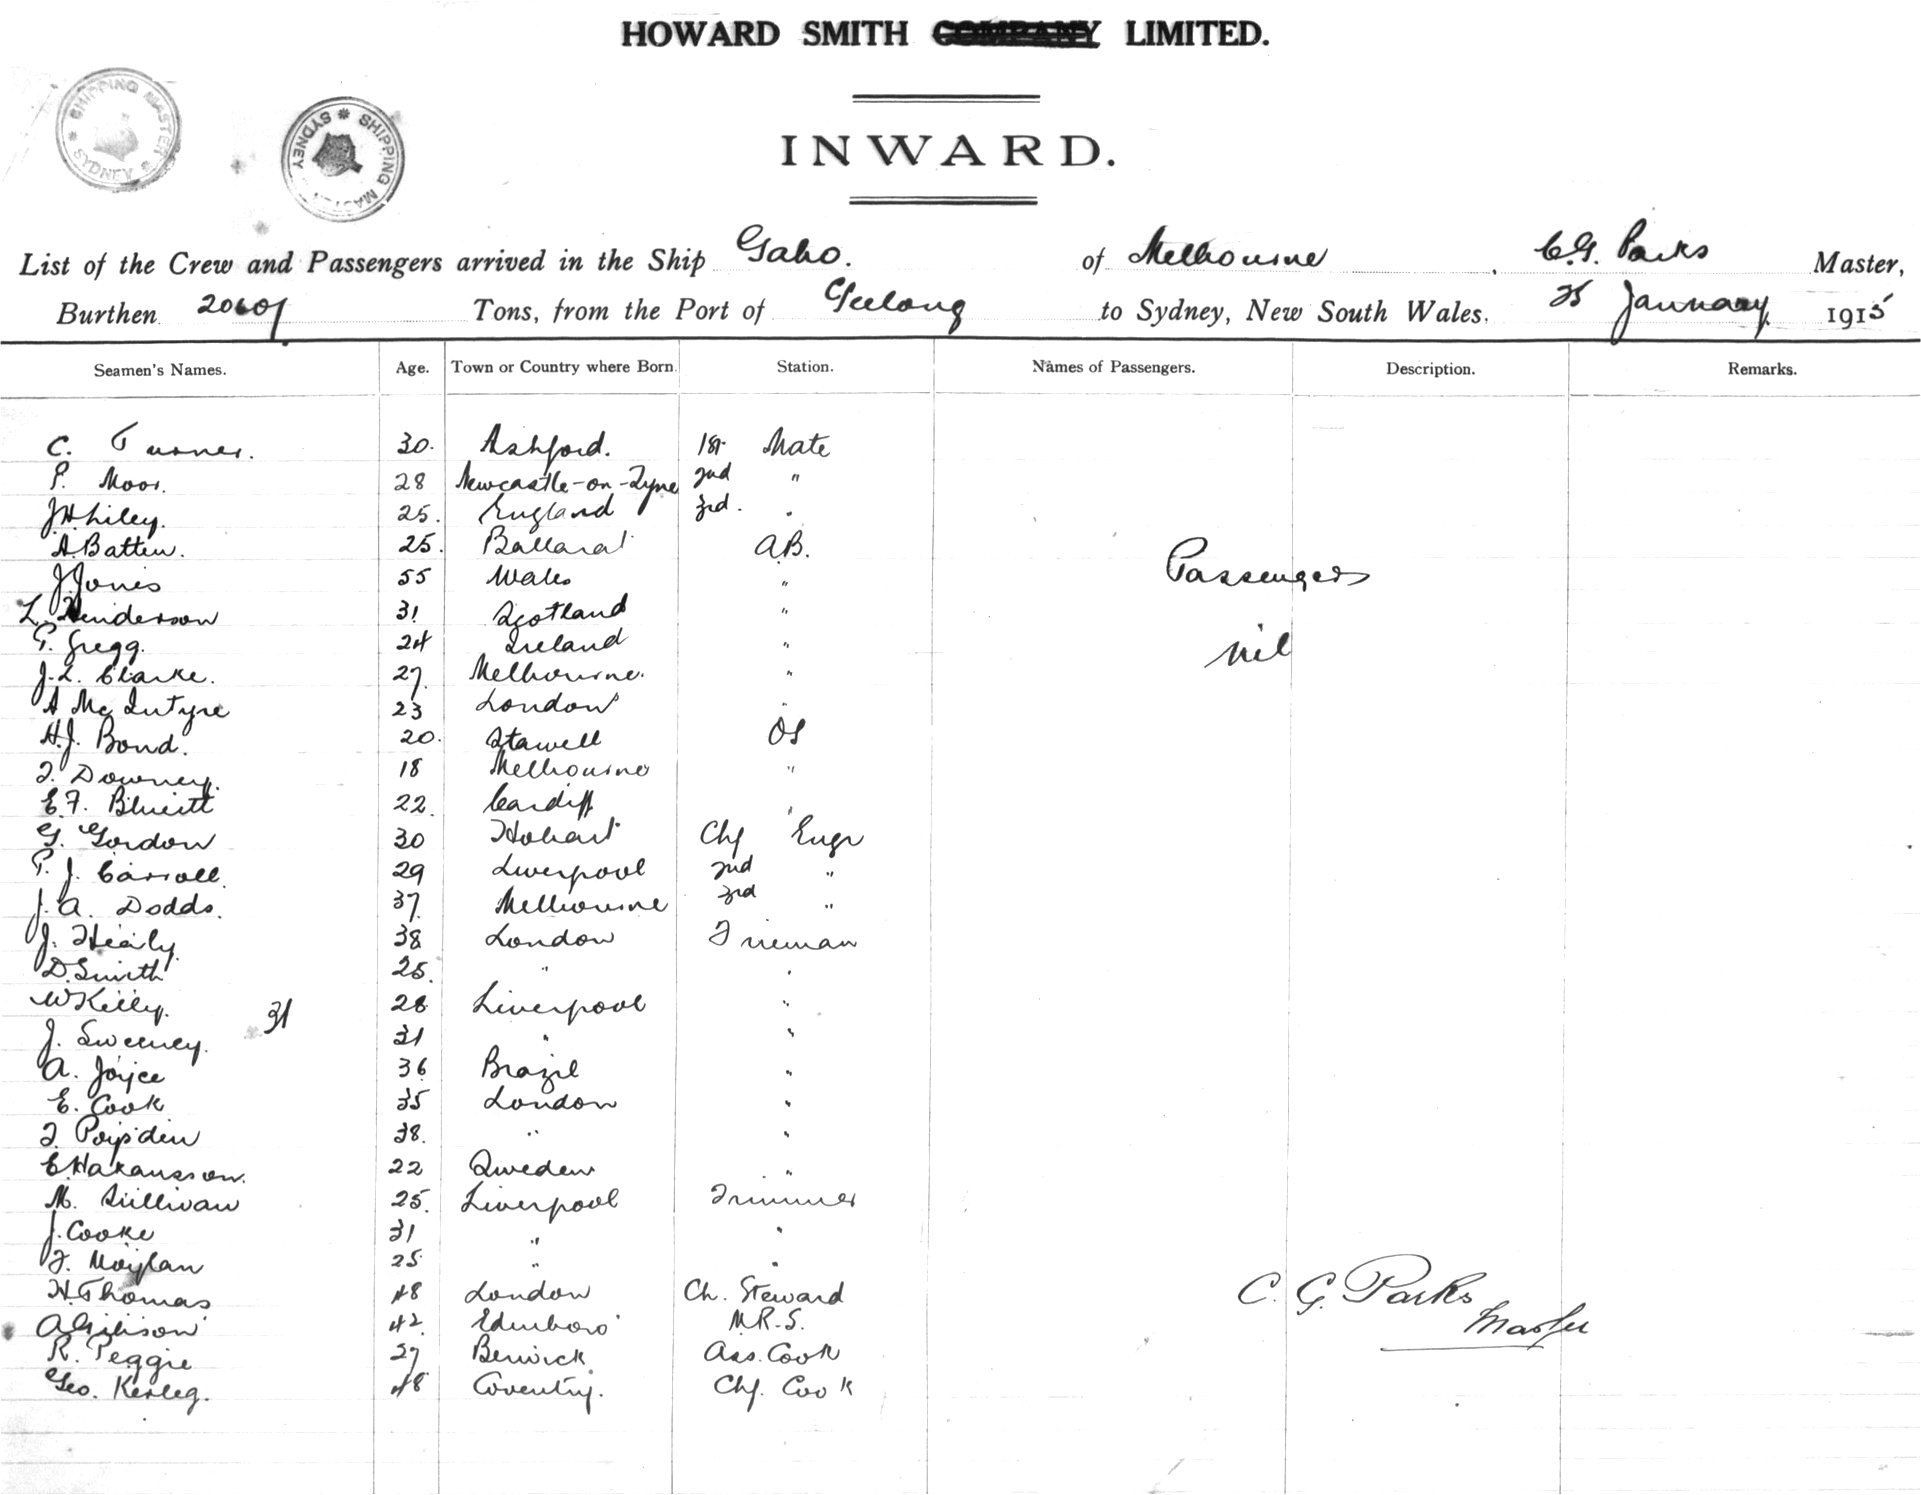 HOWARD SMITH COMPANY LIMITED.
SHIPPING MASTER SYDNEY
SHIPPING MASTER SYDNEY
INWARD.
List of the Crew and Passengers arrived in the Ship Gabo. of Melbourne, C.G. Parks Master,
Burthen 2060 Tons, from the Port of Geelong to Sydney, New South Wales. 25 January 1915
Seamen's Names. Age. Town or Country where Born Station. Names of Passengers. Description. Remarks.
C. Turner. 30. Ashford. 1st Mate
P. Moor. 28 Newcastle-on-Tyne 2nd "
J.H. Liley. 25. England 3rd. "
A. Batten. 25. Ballarat A.B.
Passengers
J. Jones 55 Wales "
L. Henderson 31 Scotland "
P. Gregg. 24 Ireland "
nil
J.L. Clarke. 27 Melbourne. "
A McIntyre 23 London "
H.J. Bond. 20. Stawell OS
J. Downey. 18 Melbourne "
E.F. 22. Cardiff "
G. Gordon 30 Hobart Chf Engr
P. J. Carroll. 29 Liverpool 2nd "
J. A. Dodds. 37 Melbourne 3rd "
J. Healy. 38 London Fireman
D. Smith 25. " "
W Kelly. 28 Liverpool "
31
J. Sweeney. 31 " "
A. Joyce 36 Brazil "
E. Cook 35 London "
38. " "
E. Hakansson. 22 Sweden "
M. Sullivan 25. Liverpool Trimmer
J. Cooke 31 " "
Moylan 25 " "
H. Thomas 48 London Ch. Steward
C. G. Parks
Master
A Gibson 42. Edinboro' M.R.S.
R. Peggie 27 Berwick Ass. Cook
Geo. 48 Coventry. Chf. Cook